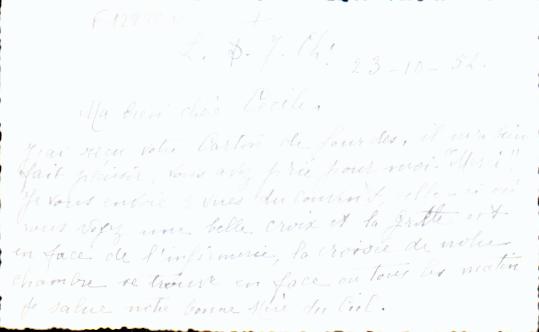 +
L. S. J. Ch!
23-10-52.
Ma bien chère Cécile,
J'ai reçu votre Carton de Lourdes, il m'a bien
fait plaisir, vous avez prié pour moi "Merci".
Je vous envoie 2 vues du couvent, celle-ci où
vous voyez une belle croix et la grotte est
en face de l'infirmerie, la croisée de notre
chambre se trouve en face où tous les matin
je salue notre bonne Mère du Ciel.